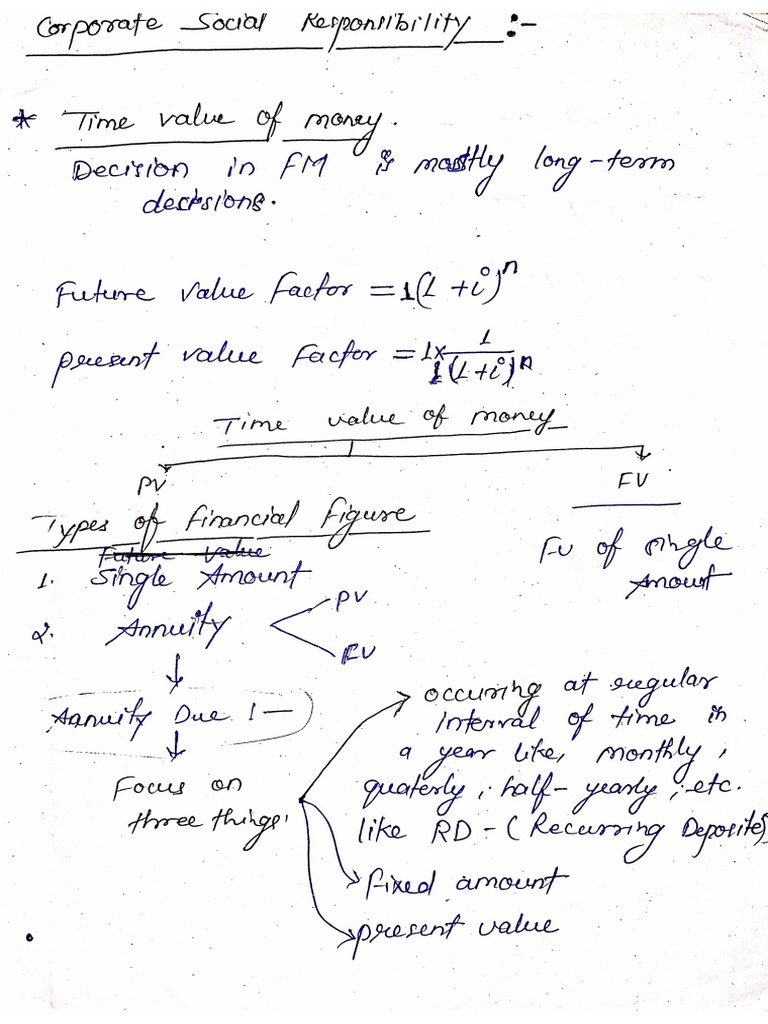 Corporate Social Responsibility :-
* Time value of money.
Decision in FM is mostly long-term
decisions.
Future value Factor = 1(1+i)^n
present value Factor = 1x 1/1(1+i)^n
Time value of money
PV FV
Types of financial figure
Future value
1. Single Amount
FV of single
Amount
2. Annuity
PV
FV
Aanuity Due !—
Focus on
three things.
occurring at regular
interval of time in
a year like, monthly,
quaterly, half-yearly, etc.
like RD-(Recurring Deposite)
fixed amount
present value